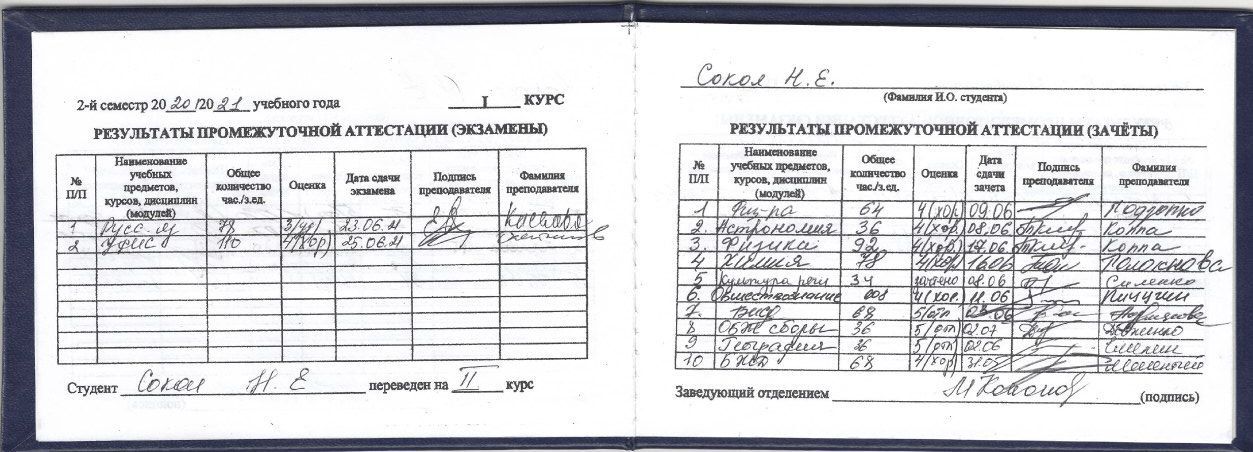 2-й семестр 2020/2021 учебного года I КУРС
РЕЗУЛЬТАТЫ ПРОМЕЖУТОЧНОЙ АТТЕСТАЦИИ (ЭКЗАМЕНЫ)
№ П/П Наименование учебных предметов, курсов, дисциплин (модулей) Общее количество час./з.ед. Оценка Дата сдачи экзамена Подпись преподавателя Фамилия преподавателя
1 Русс. яз 78 3/уд) 23.06.21
2 110 4(хор) 25.06.21
Студент Сокол Н. Е переведен на II курс
Сокол Н. Е.
(Фамилия И.О. студента)
РЕЗУЛЬТАТЫ ПРОМЕЖУТОЧНОЙ АТТЕСТАЦИИ (ЗАЧЁТЫ)
№ П/П Наименование учебных предметов, курсов, дисциплин (модулей) Общее количество час./з.ед. Оценка Дата сдачи зачета Подпись преподавателя Фамилия преподавателя
1 Физ-ра 64 4(хор) 09.06
2. Астрономия 36 4(хор) 08.06 Коппа
3. Физика 92 4(хор) Коппа
4 Химия 78 4(хор) 16.06
5 Культура речи 34 зачтено 08.06
6. Обществознание 108 4(хор. 11.06 Пичугин
7. 68 5/отл
8 ОБЖ сборы 36 5/отл 02.07
9 География 36 5/отл 02.06
10 БЖД 68 4/хор) 31.05
Заведующий отделением (подпись)